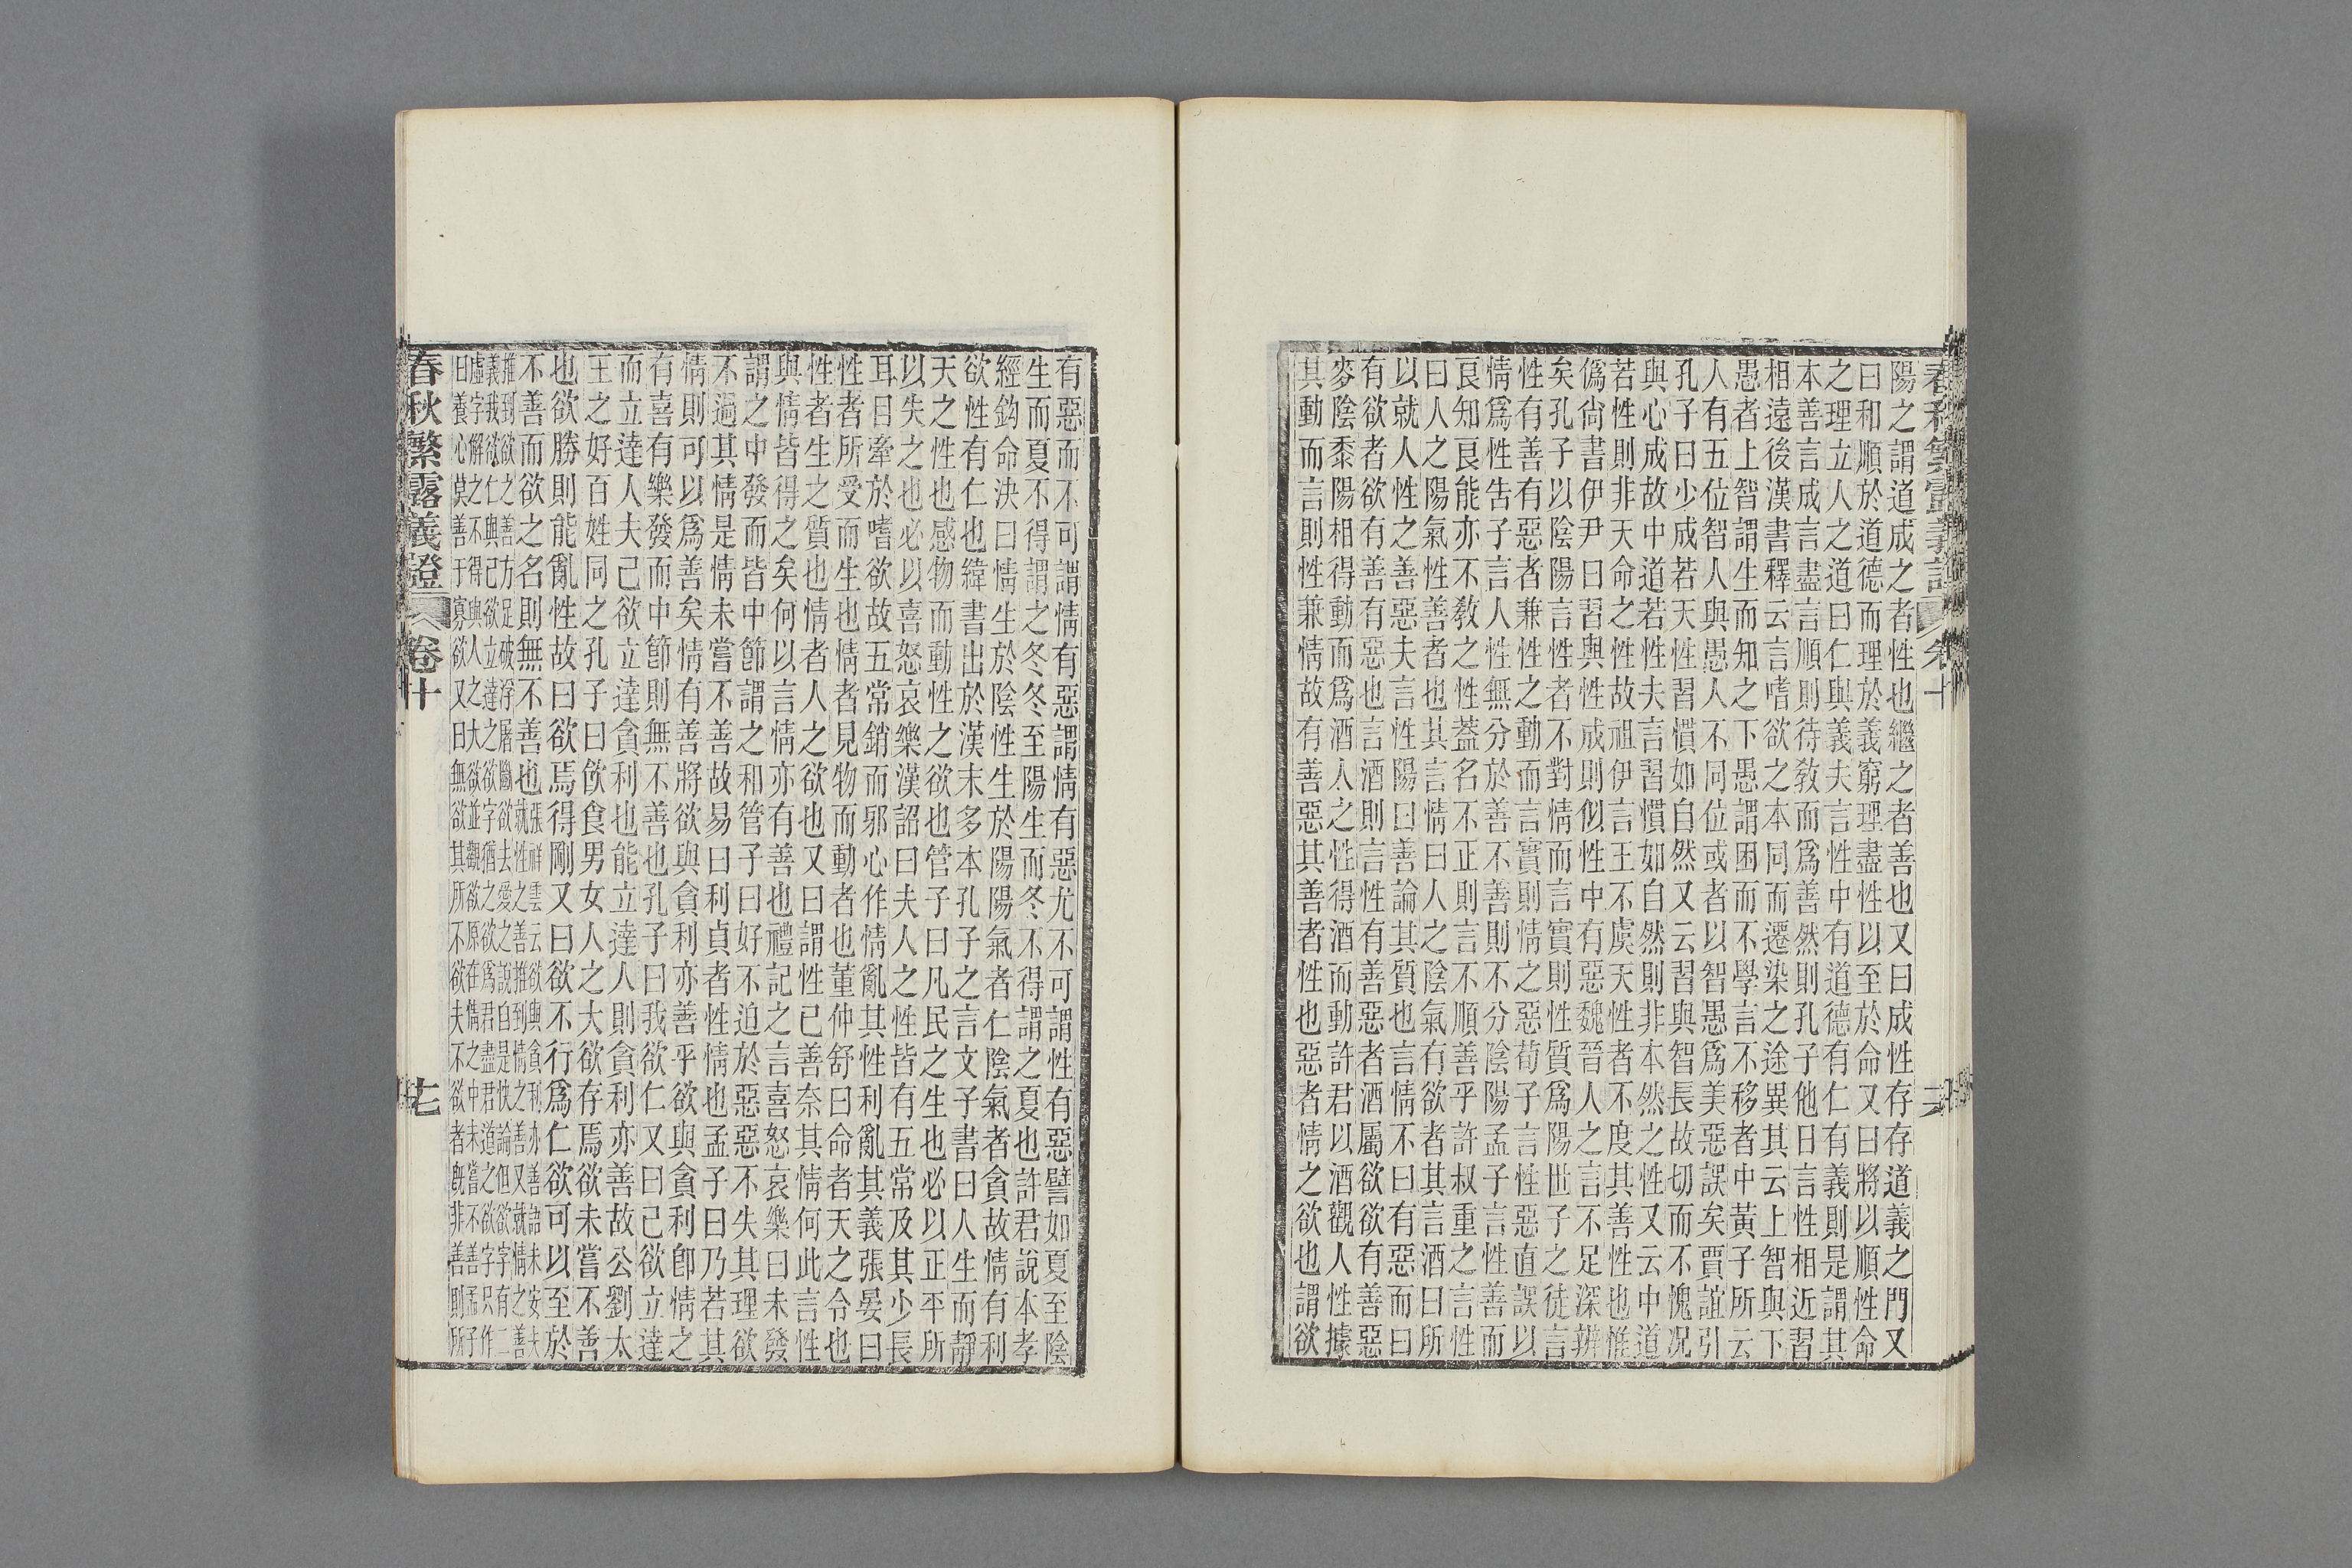 陽之謂道成之者性也繼之者善也又曰成性存存道義之門又
曰和順於道德而理於義窮理盡性以至於命又曰將以順性命
之理立人之道曰仁與義夫言性中有道德有仁有義則是謂其
本善言成言盡言順則待敎而爲善然則孔子他日言性相近習
相遠後漢書釋云言嗜欲之本同而遷染之途異其云上智與下
愚者上智謂生而知之下愚謂困而不學言不移者中黃子所云
人有五位智人與愚人不同位或者以智愚爲美惡誤矣賈誼引
孔子曰少成若天性習慣如自然又云習與智長故切而不愧况
與心成故中道若性夫言習慣如自然則非本然之性又云中道
若性則非天命之性故祖伊言王不虞天性者不度其善性也惟
僞尙書伊尹曰習與性成則似性中有惡魏晉人之言不足深辨
矣孔子以陰陽言性者不對情而言實則性質爲陽世子之徒言
性有善有惡者兼性之動而言實則情之惡荀子言性惡直誤以
情爲性告子言人性無分於善不善則不分陰陽孟子言性善而
良知良能亦不敎之性蓋名不正則言不順善乎許叔重之言性
曰人之陽氣性善者也其言情曰人之陰氣有欲者其言酒曰所
以就人性之善惡夫言性陽曰善論其質也言情不曰有惡而曰
有欲者欲有善有惡也言酒則言性有善惡者酒屬欲欲有善惡
麥陰黍陽相得動而爲酒人之性得酒而動許君以酒觀人性據
其動而言則性兼情故有善惡其善者性也惡者情之欲也謂欲
有惡而不可謂情有惡謂情有惡尤不可謂性有惡譬如夏至陰
生而夏不得謂之冬冬至陽生而冬不得謂之夏也許君說本孝
經鈎命決曰情生於陰性生於陽陽氣者仁陰氣者貪故情有利
欲性有仁也緯書出於漢末多本孔子之言文子書曰人生而靜
天之性也感物而動性之欲也管子曰凡民之生也必以正平所
以失之也必以喜怒哀樂漢詔曰夫人之性皆有五常及其少長
耳目牽於嗜欲故五常銷而邪心作情亂其性利亂其義張晏曰
性者所受而生也情者見物而動者也董仲舒曰命者天之令也
性者生之質也情者人之欲也又曰謂性已善奈其情何此言性
與情皆得之矣何以言情亦有善也禮記之言喜怒哀樂曰未發
謂之中發而皆中節謂之和管子曰好不迫於惡惡不失其理欲
不過其情是情未嘗不善故易曰利貞者性情也孟子曰乃若其
情則可以爲善矣情有善將欲與貪利亦善乎欲與貪利卽情之
有喜有樂發而中節則無不善也孔子曰我欲仁又曰己欲立達
而立達人夫己欲立達貪利也能立達人則貪利亦善故公劉太
王之好百姓同之孔子曰飮食男女人之大欲存焉欲未嘗不善
也欲勝則能亂性故曰欲焉得剛又曰欲不行爲仁欲可以至於
不善而欲之名則無不善也張祥雲云欲與貪利亦善語未安夫
就性之善推到情之善又就情之善
推到欲之善方足破浮屠斷欲去愛之說自是快論但欲字有二
義我欲仁與己欲立達之欲字猶之欲爲君盡君道之欲字只作
虛字解之不得與人之大欲並觀欲原在情之中未嘗不善孟子
曰養心莫善于寡欲又曰無欲其所不欲夫不欲者旣非善則所
春秋繁露義證
卷十
七